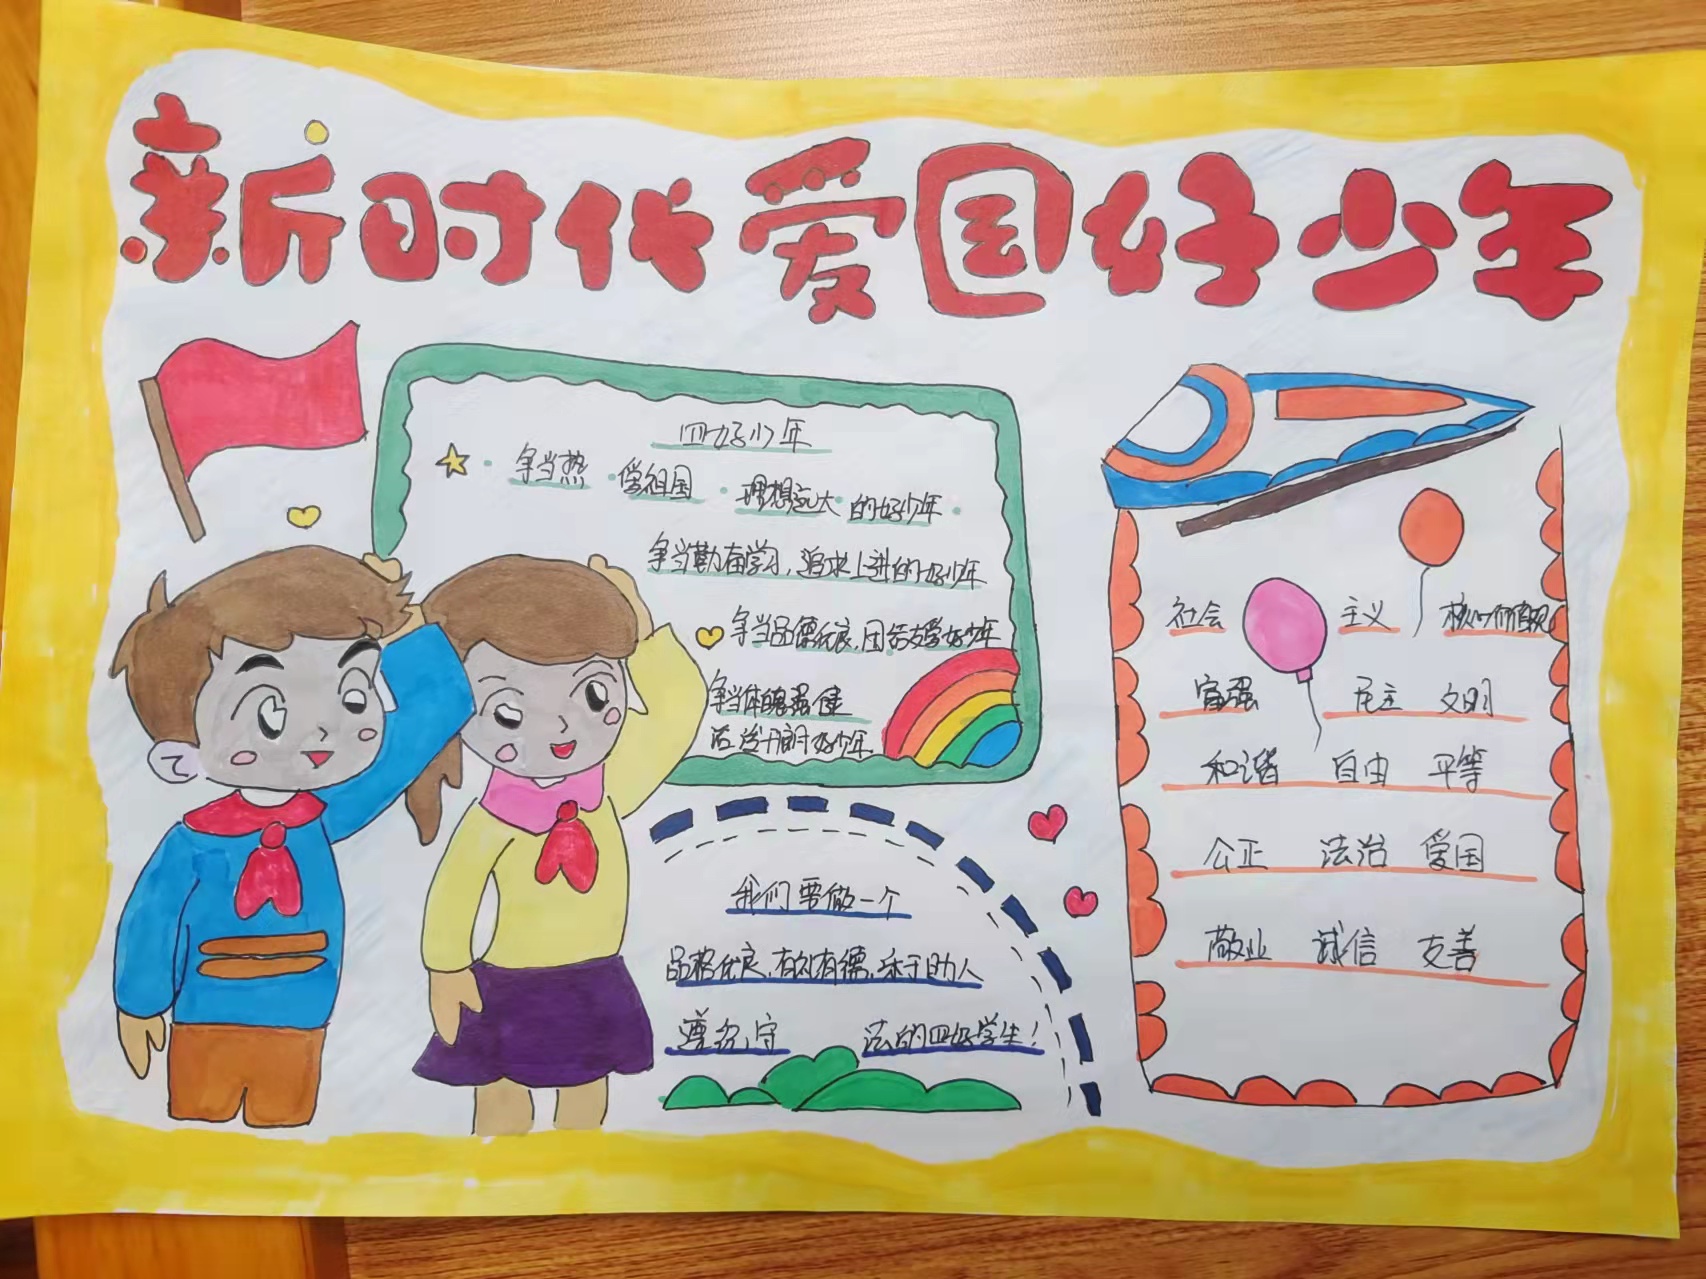 新时代爱国好少年
四好少年
争当热爱祖国 理想远大的好少年
争当勤奋学习,追求上进的好少年
争当品德优良,团结友爱好少年
争当体魄强健
活泼开朗好少年
我们要做一个
品格优良,有礼有德,乐于助人
遵纪守法的四好学生!
社会 主义 核心价值观
富强 民主 文明
和谐 自由 平等
公正 法治 爱国
敬业 诚信 友善